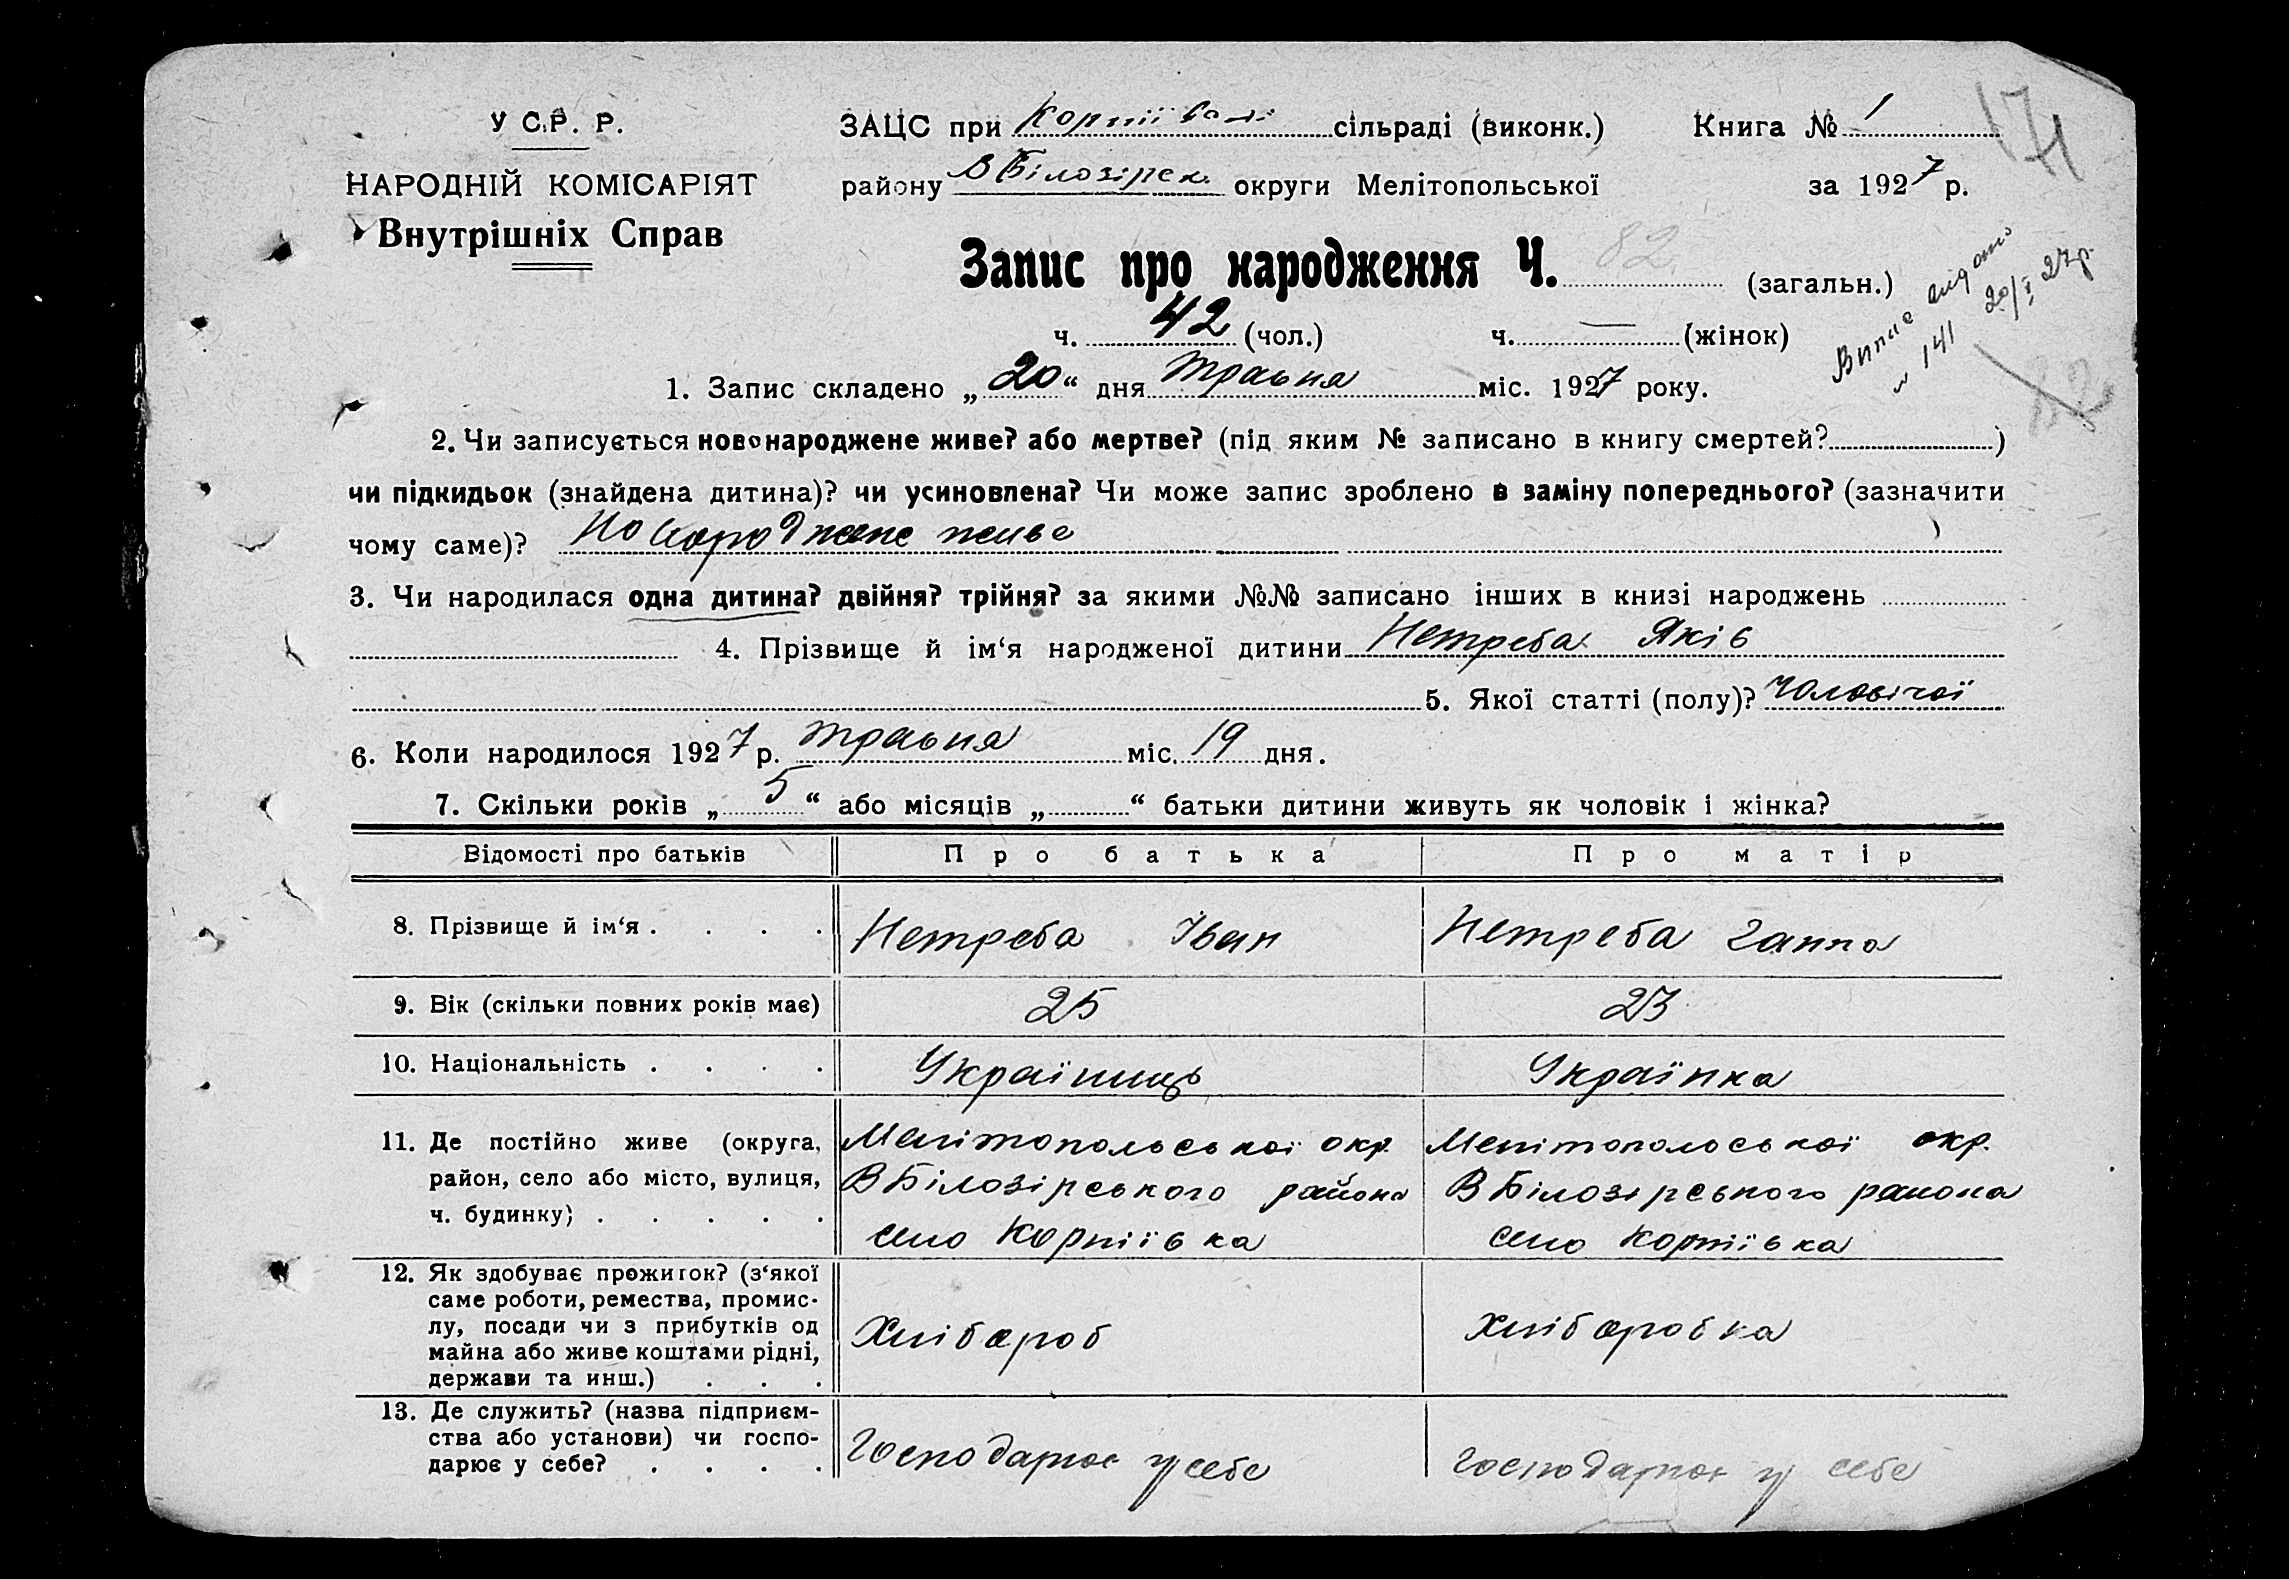 У С.Р. Р.
НАРОДНІЙ КОМІСАРІЯТ
Внутрішніх Справ
ЗАЦС при сільраді (виконк.)
району В Білозірськ. округи Мелітопольської
Книга № 1
за 1927 р.
171
Запис про народження Ч. 82 (загальн.)
ч. 42 (чол.) ч. — (жінок)
Випис видано
№ 141 20/V 27р.
82
1. Запис складено „20“ дня травня міс. 1927 року.
2. Чи записується новонароджене живе? або мертве? (під яким № записано в книгу смертей? )
чи підкидьок (знайдена дитина)? чи усиновлена? Чи може запис зроблено в заміну попереднього? (зазначити
чому саме)? Новароджене живе )
3. Чи народилася одна дитина? двійня? трійня? за якими №№ записано інших в книзі народжень
4. Прізвище й ім‘я народженої дитини Нетреба Яків
5. Якої статті (полу)? Чоловічої
6. Коли народилося 1927 р. травня міс. 19 дня.
7. Скільки років „5“ або місяців „ “ батьки дитини живуть як чоловік і жінка?
Відомості про батьків Про батька Про матір
8. Прізвище й ім‘я . . . . Нетреба Іван Нетреба Ганна
9. Вік (скільки повних років має) 25 23
10. Національність . . . . Українець Українка
11. Де постійно живе (округа, Мелітопольської окр. Мелітопольської окр.
район, село або місто, вулиця, В Білозірського района В Білозірського района
ч. будинку) . . . . . село Корніївка село Корніївка
12. Як здобуває прожиток? (з‘якої
саме роботи, ремества, промис-
лу, посади чи з прибутків од Хлібароб Хлібаробка
майна або живе коштами рідні,
держави та инш.) . . .
13. Де служить? (назва підприєм-
ства або установи) чи госпо- Господарює у себе Господарює у себе
дарює у себе? . . . .